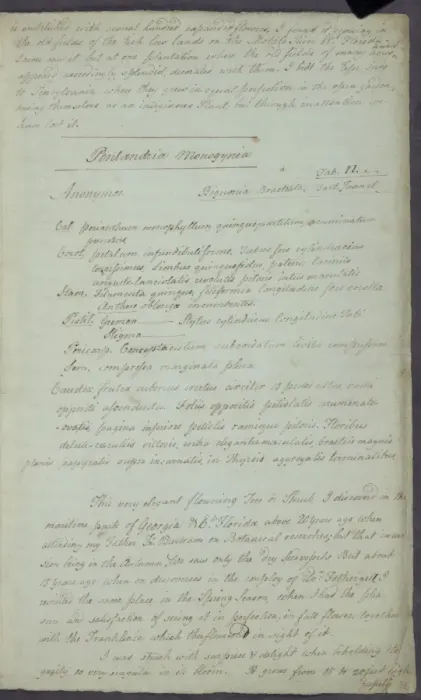 is embellished with several hundred expanded flowers, I found it growing in
the old fields of the rich low lands on the Mobile River W. Florida.
I never saw it but at one plantation where the old fields of many acres
appeared excessively splendid, decorated with them. I sent the
to Pensylvania where they grew in equal perfection in the open garden,
sowing themselves as an indigenous Plant, but through inattention we
have lost it.
Pentandria Monogynia
Tab. 11.
Anonymon Bignonia Bracteata, East Trunel
Cal. perianthium monophyllum quinquepartitum acuminatum
persistens
Corol. petalum infundibuliforme, Tubus fere cylindraceus
longissimus, limbus quinquefidus patens laciniis
lanciolatis revolutis pilosis intus maculatis
Stam. Filamenta quinque, filiformia longitudine fere corolla
Anthera oblonga incumbentes.
Pistil. Germen — Stylus cylindricus longitudine Tubi
Stigma —
Pericarp. Capsula subrotunda compressum
Sem. compressa marginata plura
Caudex frutex arboreus erectus circiter 15 pedes altus ramis
oppositis ascendentes Foliis oppositis petiolatis
ovatis pagina inferiore petiolis ramisque pilosis. Floribus
intus eleganter maculatis, bracteis magnis
planis supra incarnatis, in Thyrsis aggregatis terminalibus
This very elegant flowering Tree or Shrub I discovered in the
maritime parts of Georgia & Et. Florida above 20 years ago when
attending my Father Jn. Bartram on Botanical researches; but that
sion being in the Autumn Time saw only the dry But about
15 years ago when on discoveries in the employ of Doctr. Fothergill I
revisited the same place in the Spring Season, when I had the plea
sure and satisfaction of seeing it in perfection, in full flower, together
with the Franklinia which then flowered in sight of it.
I was struck with surprise & delight when beholding the
in its bloom. It grows from 15 to 20 feet high